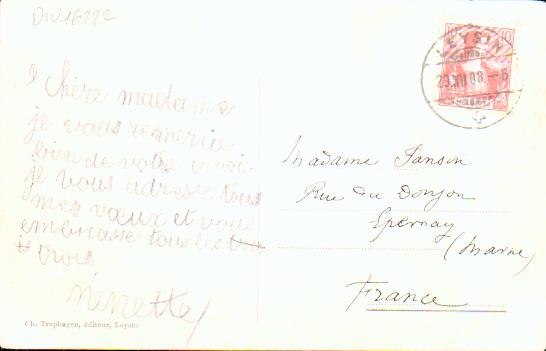 DIV16222
Chère madame
je vous remercie
bien de votre envoi.
je vous adresse tous
mes vœux et vous
embrasse tous les
trois
Nénette
Ch. Traphagen, éditeur, Leysin
10 10
LEYSIN
29.XII.08.-6
Madame Janson
Rue du Donjon
Epernay
(Marne)
France